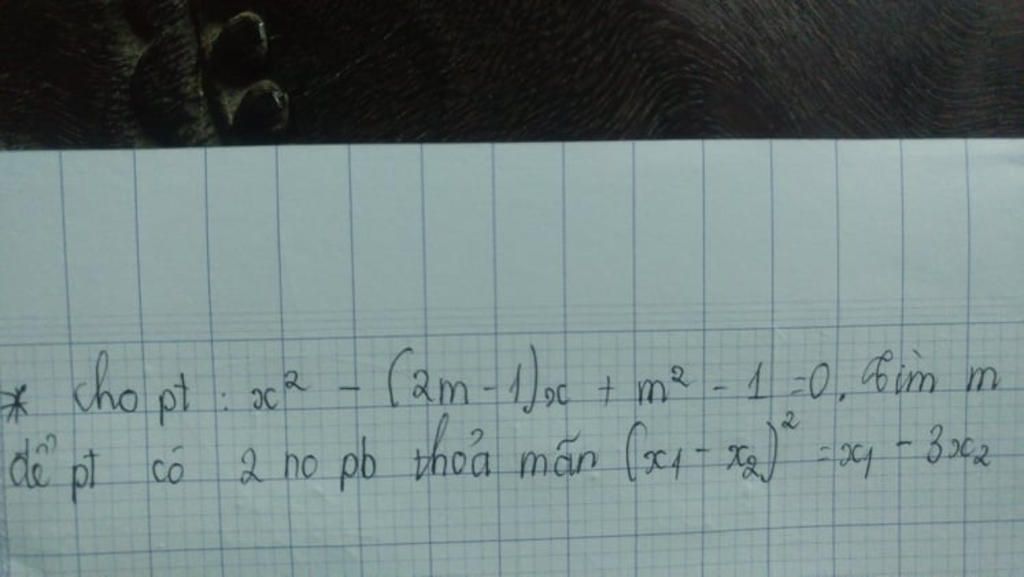 * Cho pt : x² - (2m - 1)x + m² - 1 = 0. Tìm m
để pt có 2 no pb thoả mãn (x₁ - x₂)² = x₁ - 3x₂